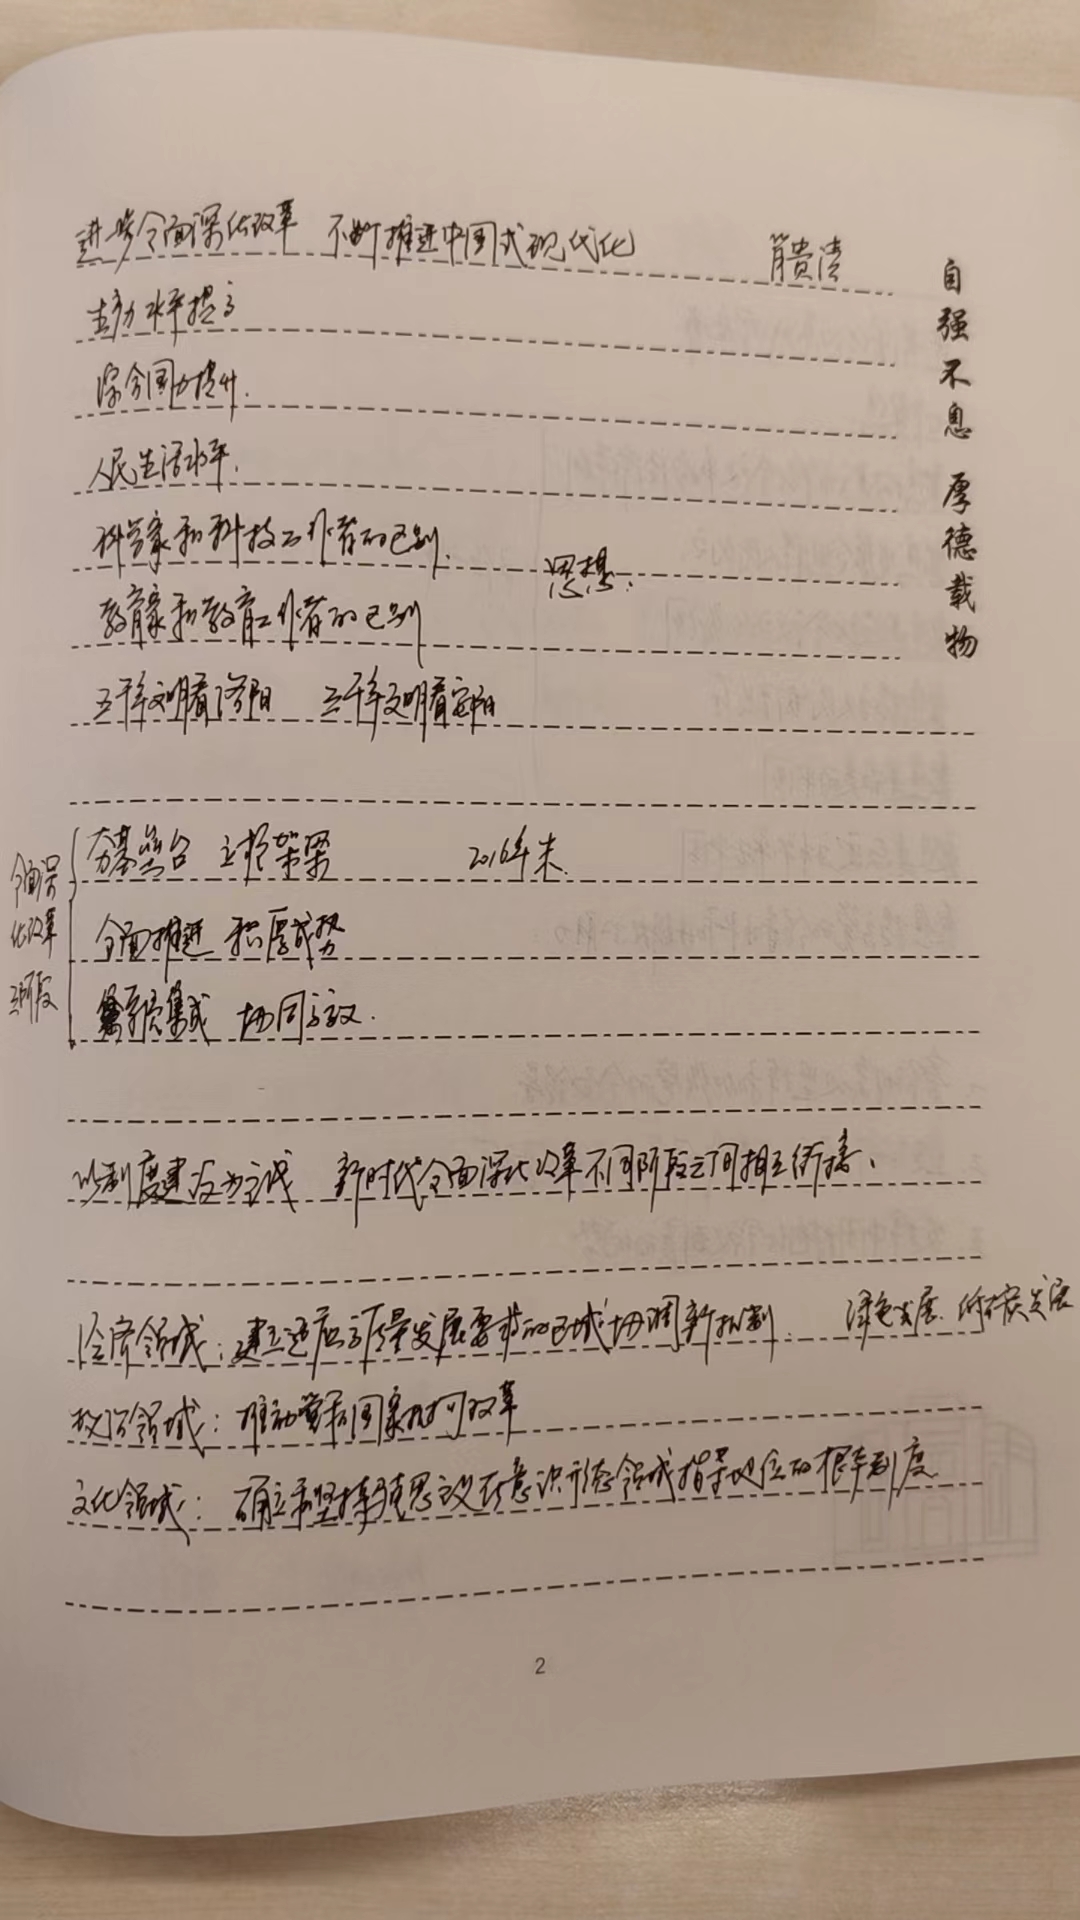 进一步全面深化改革 不断推进中国式现代化 肖贵清
生产力水平提高
综合国力提升.
人民生活水平.
科学家和科技工作者的区别. 思想.
教育家和教育工作者的区别
五千年文明看洛阳 三千年文明看安阳
自强不息 厚德载物
全面深化改革三阶段
夯基垒台 立柱架梁 2016年末.
全面推进 积厚成势
系统集成 协同高效.
以制度建设为主线 新时代全面深化改革不同阶段之间相互衔接、
经济领域:建立适应高质量发展要求的区域协调新机制. 绿色发展.低碳发展
政治领域:推动党和国家机构改革
文化领域:确立和坚持马克思主义在意识形态领域指导地位的根本制度
2